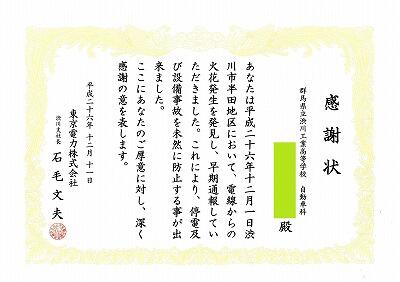 感謝状
群馬県立渋川工業高等学校　自動車科
殿
あなたは平成二十六年十二月一日渋
川市半田地区において、電線からの
火花発生を発見し、早期通報してい
ただきました。これにより、停電及
び設備事故を未然に防止する事が出
来ました。
ここにあなたのご厚意に対し、深く
感謝の意を表します。
平成二十六年　十二月　十一日
東京電力株式会社
渋川支社長　石毛文夫